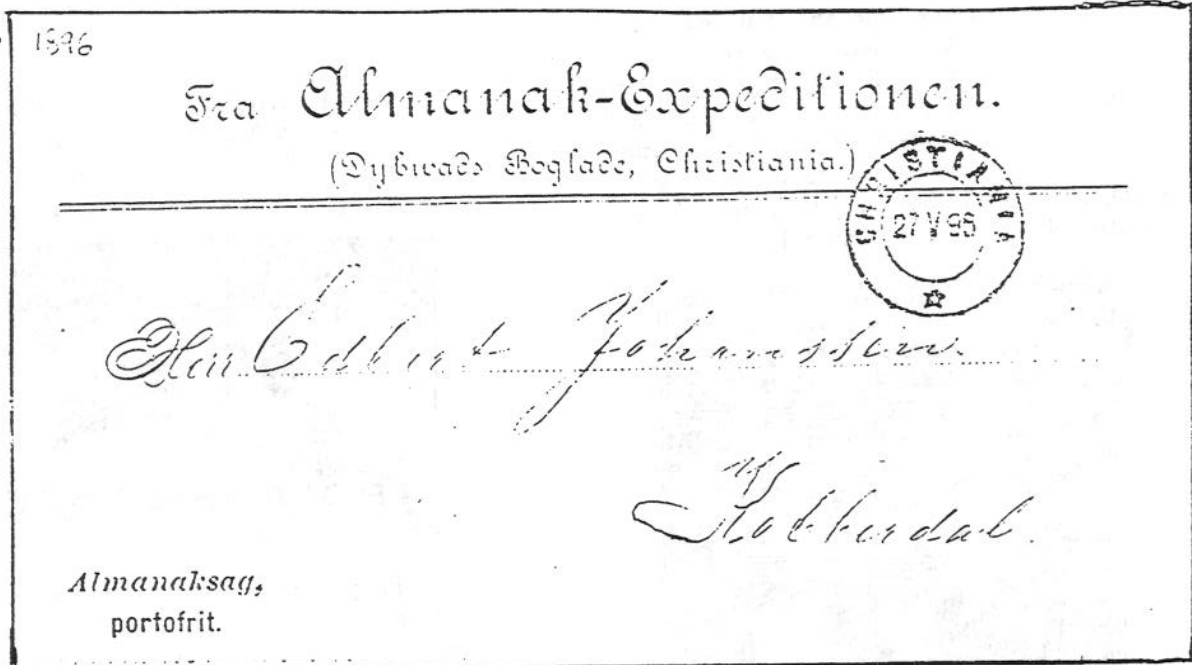 1896
Fra Almanak-Expeditionen.
(Dybwads Boglade, Christiania.)
CHRISTIANIA
27 V 96
Herr Johanssen
Kobberdal.
Almanaksag,
portofrit.